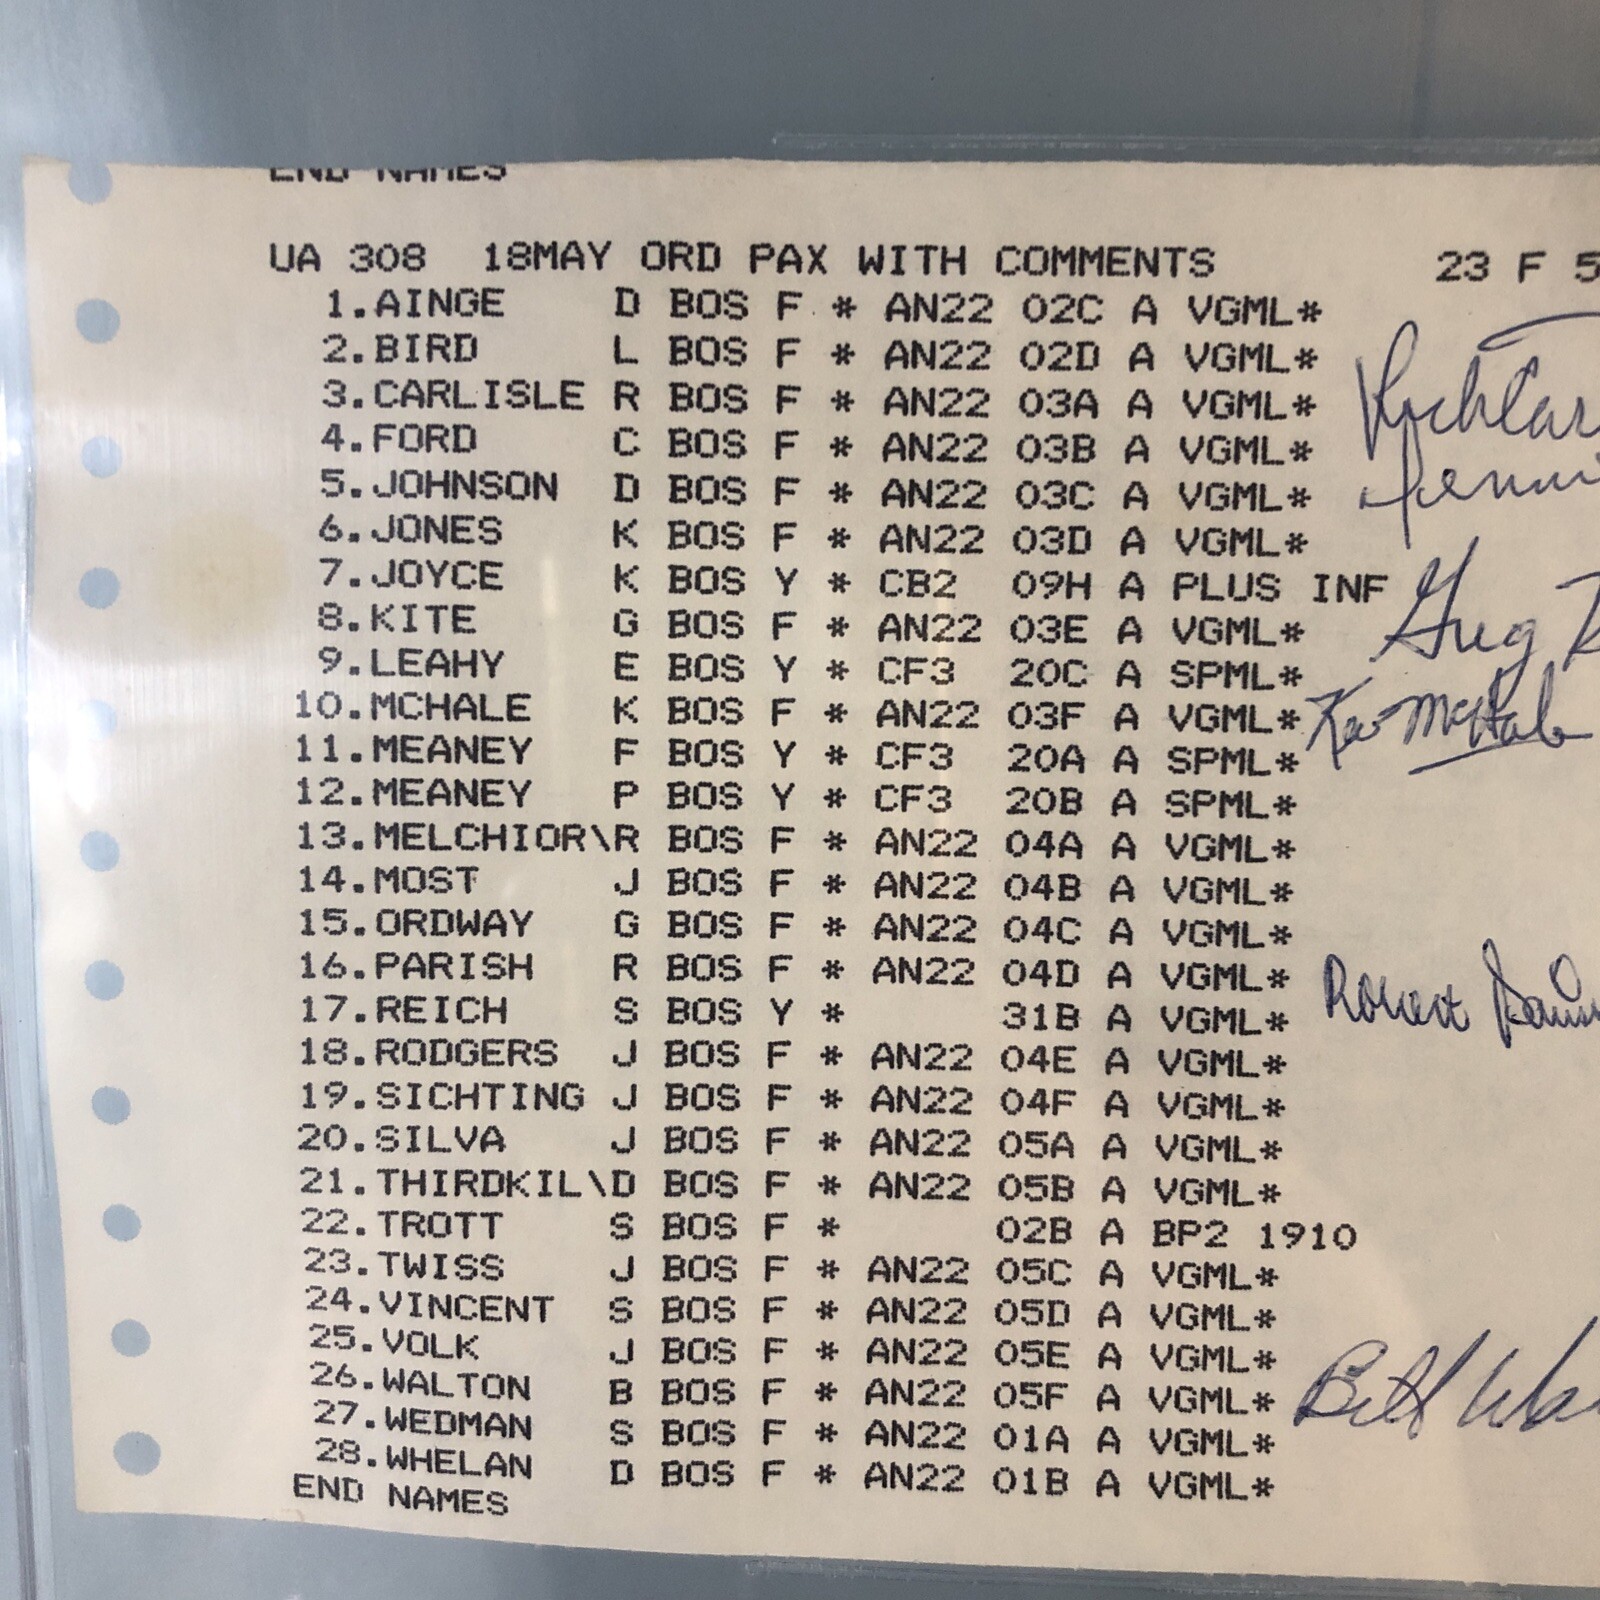 END NAMES
UA 308 18MAY ORD PAX WITH COMMENTS 23 F 5
1.AINGE D BOS F * AN22 02C A VGML*
2.BIRD L BOS F * AN22 02D A VGML*
3.CARLISLE R BOS F * AN22 03A A VGML*
4.FORD C BOS F * AN22 03B A VGML*
5.JOHNSON D BOS F * AN22 03C A VGML*
6.JONES K BOS F * AN22 03D A VGML*
7.JOYCE K BOS Y * CB2 09H A PLUS INF
8.KITE G BOS F * AN22 03E A VGML* Greg
9.LEAHY E BOS Y * CF3 20C A SPML*
10.MCHALE K BOS F * AN22 03F A VGML* Kev McHale
11.MEANEY F BOS Y * CF3 20A A SPML*
12.MEANEY P BOS Y * CF3 20B A SPML*
13.MELCHIOR\R BOS F * AN22 04A A VGML*
14.MOST J BOS F * AN22 04B A VGML*
15.ORDWAY G BOS F * AN22 04C A VGML*
16.PARISH R BOS F * AN22 04D A VGML* Robert
17.REICH S BOS Y * 31B A VGML*
18.RODGERS J BOS F * AN22 04E A VGML*
19.SICHTING J BOS F * AN22 04F A VGML*
20.SILVA J BOS F * AN22 05A A VGML*
21.THIRDKIL\D BOS F * AN22 05B A VGML*
22.TROTT S BOS F * 02B A BP2 1910
23.TWISS J BOS F * AN22 05C A VGML*
24.VINCENT S BOS F * AN22 05D A VGML*
25.VOLK J BOS F * AN22 05E A VGML*
26.WALTON B BOS F * AN22 05F A VGML* Bill Wal
27.WEDMAN S BOS F * AN22 01A A VGML*
28.WHELAN D BOS F * AN22 01B A VGML*
END NAMES